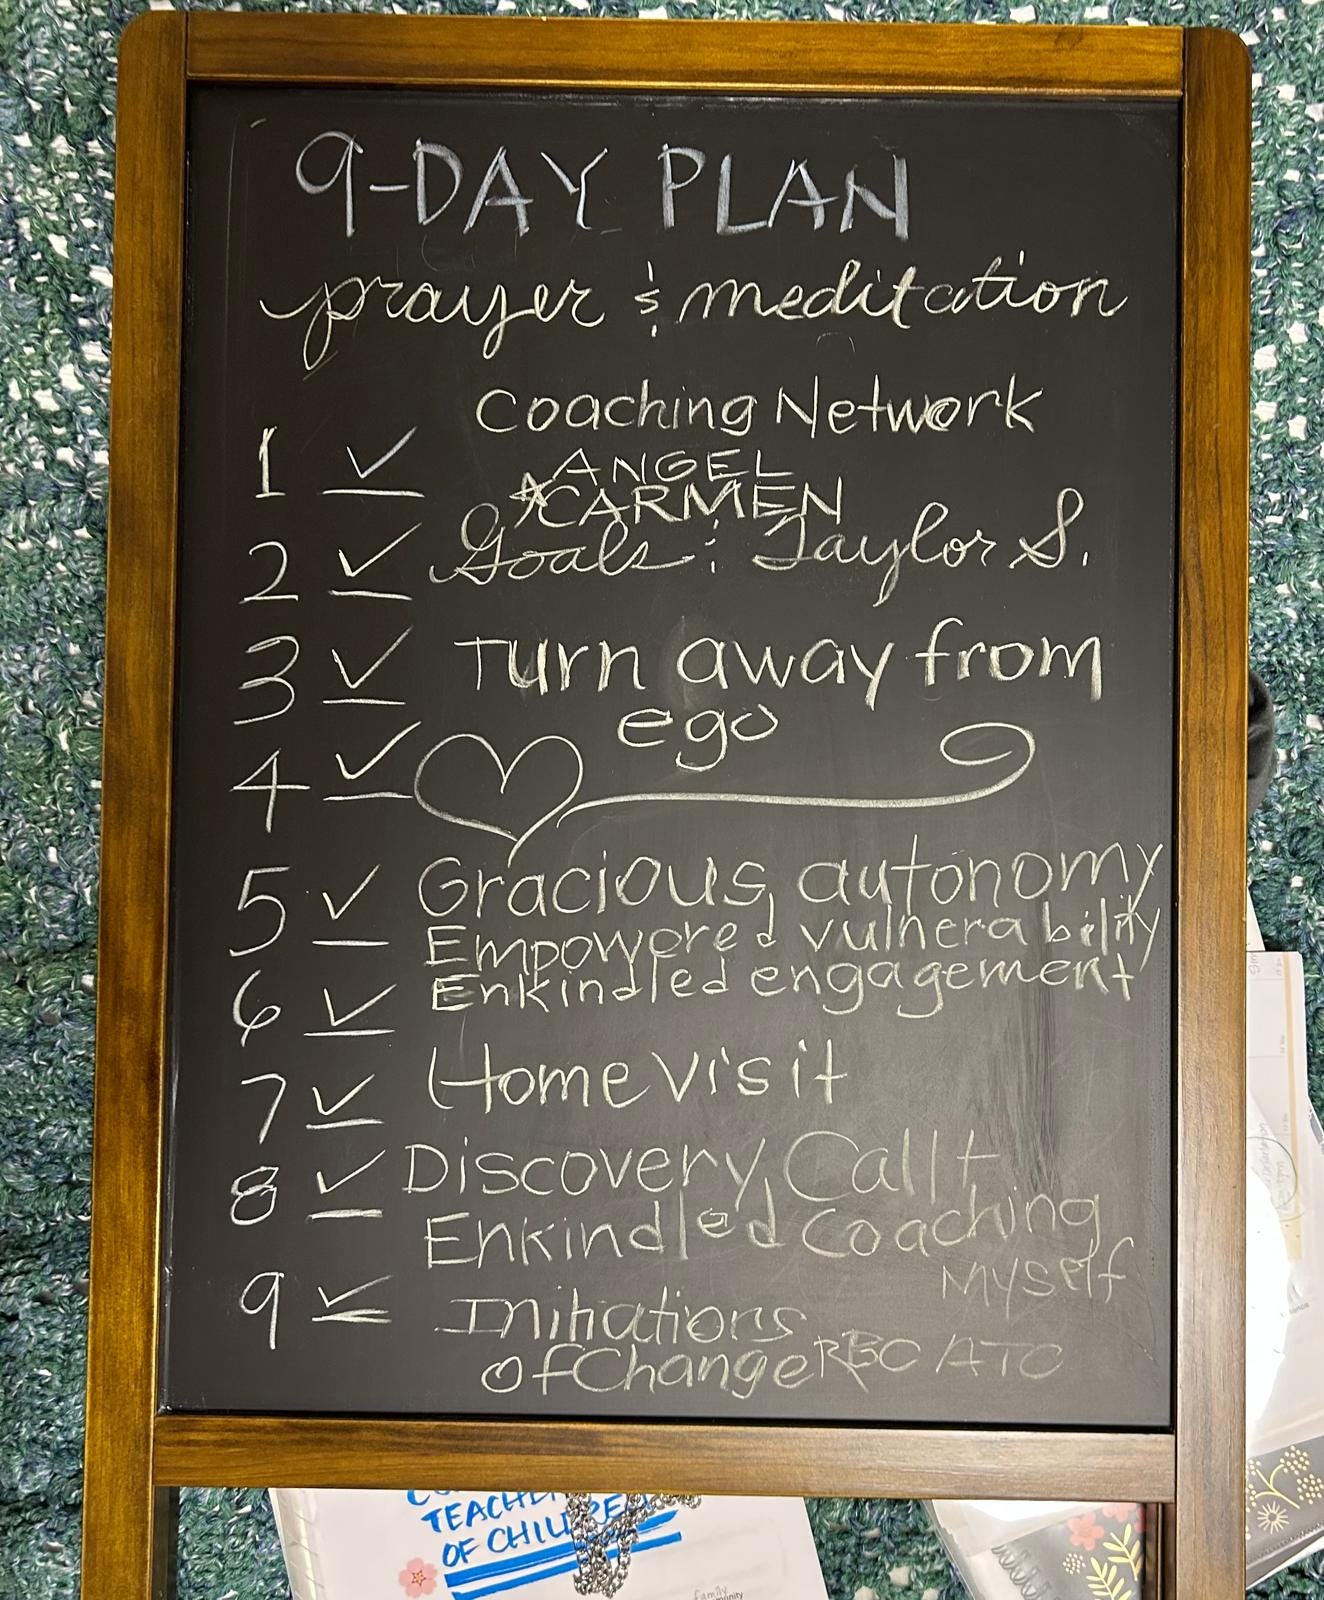 9-DAY PLAN
prayer & meditation
Coaching Network
1 ✓ ANGEL
CARMEN
2 ✓ Goals: Taylor S.
3 ✓ Turn away from
ego
4 ✓
5 ✓ Gracious autonomy
Empowered vulnerability
6 ✓ Enkindled engagement
7 ✓ Home visit
8 ✓ Discovery Call +
Enkindled Coaching
Myself
9 ✓ Initiations
of Change RBC / ATC
TEACHE
OF CHILDREN
family